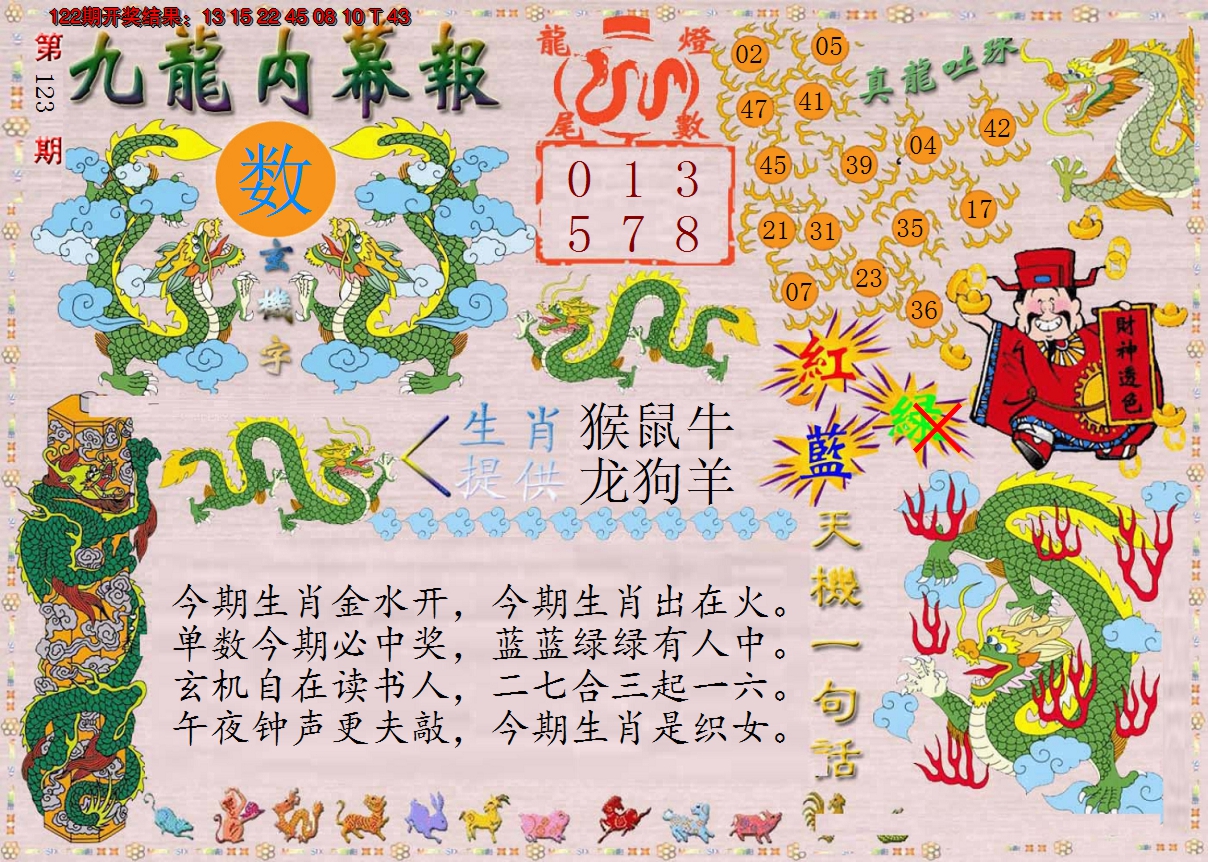 122期开奖结果：13 15 22 45 06 10 T 43
第123期
九龍内幕報
数
玄機字
龍燈
尾數
0 1 3
5 7 8
真龍吐珠
02
05
47
41
45
39
04
42
21
31
35
17
07
23
36
財神透色
紅
绿
藍
生肖 猴鼠牛
提供 龙狗羊
天機一句话
今期生肖金水开，今期生肖出在火。
单数今期必中奖，蓝蓝绿绿有人中。
玄机自在读书人，二七合三起一六。
午夜钟声更夫敲，今期生肖是织女。